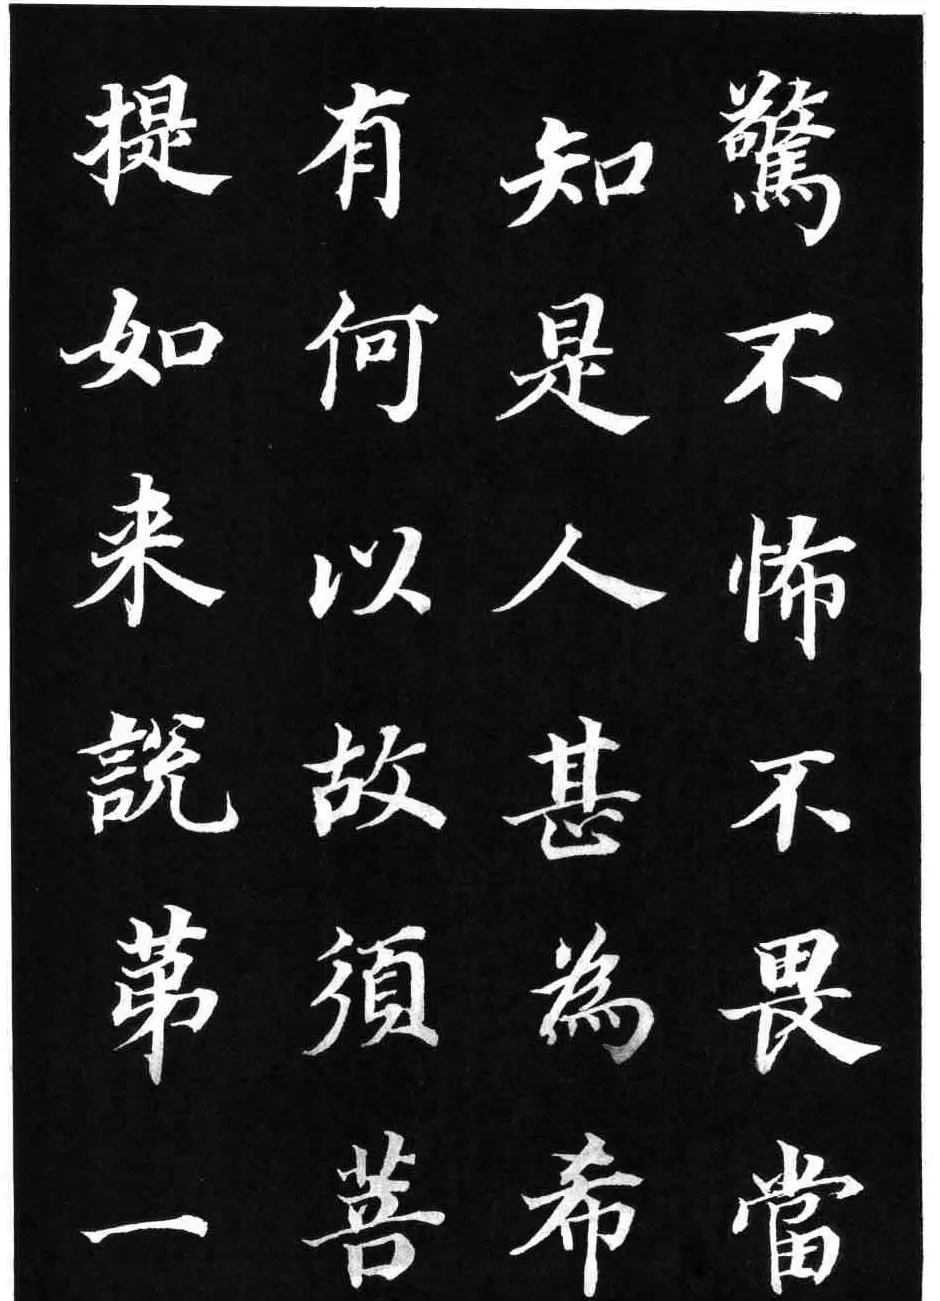 驚不怖不畏當
知是人甚為希
有何以故須菩
提如来說苐一